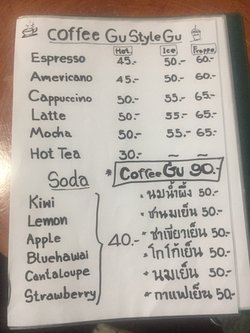 Coffee Gu Style Gu
Hot Ice Frappe
Espresso 45.- 50.- 60.-
Americano 45.- 50.- 60.-
Cappuccino 50.- 55.- 65.-
Latte 50.- 55.- 65.-
Mocha 50.- 55.- 65.-
Hot Tea 30.- – –
* Coffee Gu 90.-
Soda
Kiwi
Lemon
Apple
Bluehawai
Cantaloupe
Strawberry
40.-
* นมน้ำผึ้ง 50.-
* ชานมเย็น 50.-
* ชาเขียวเย็น 50.-
* โกโก้เย็น 50.-
* นมเย็น 50.-
* กาแฟเย็น 50.-